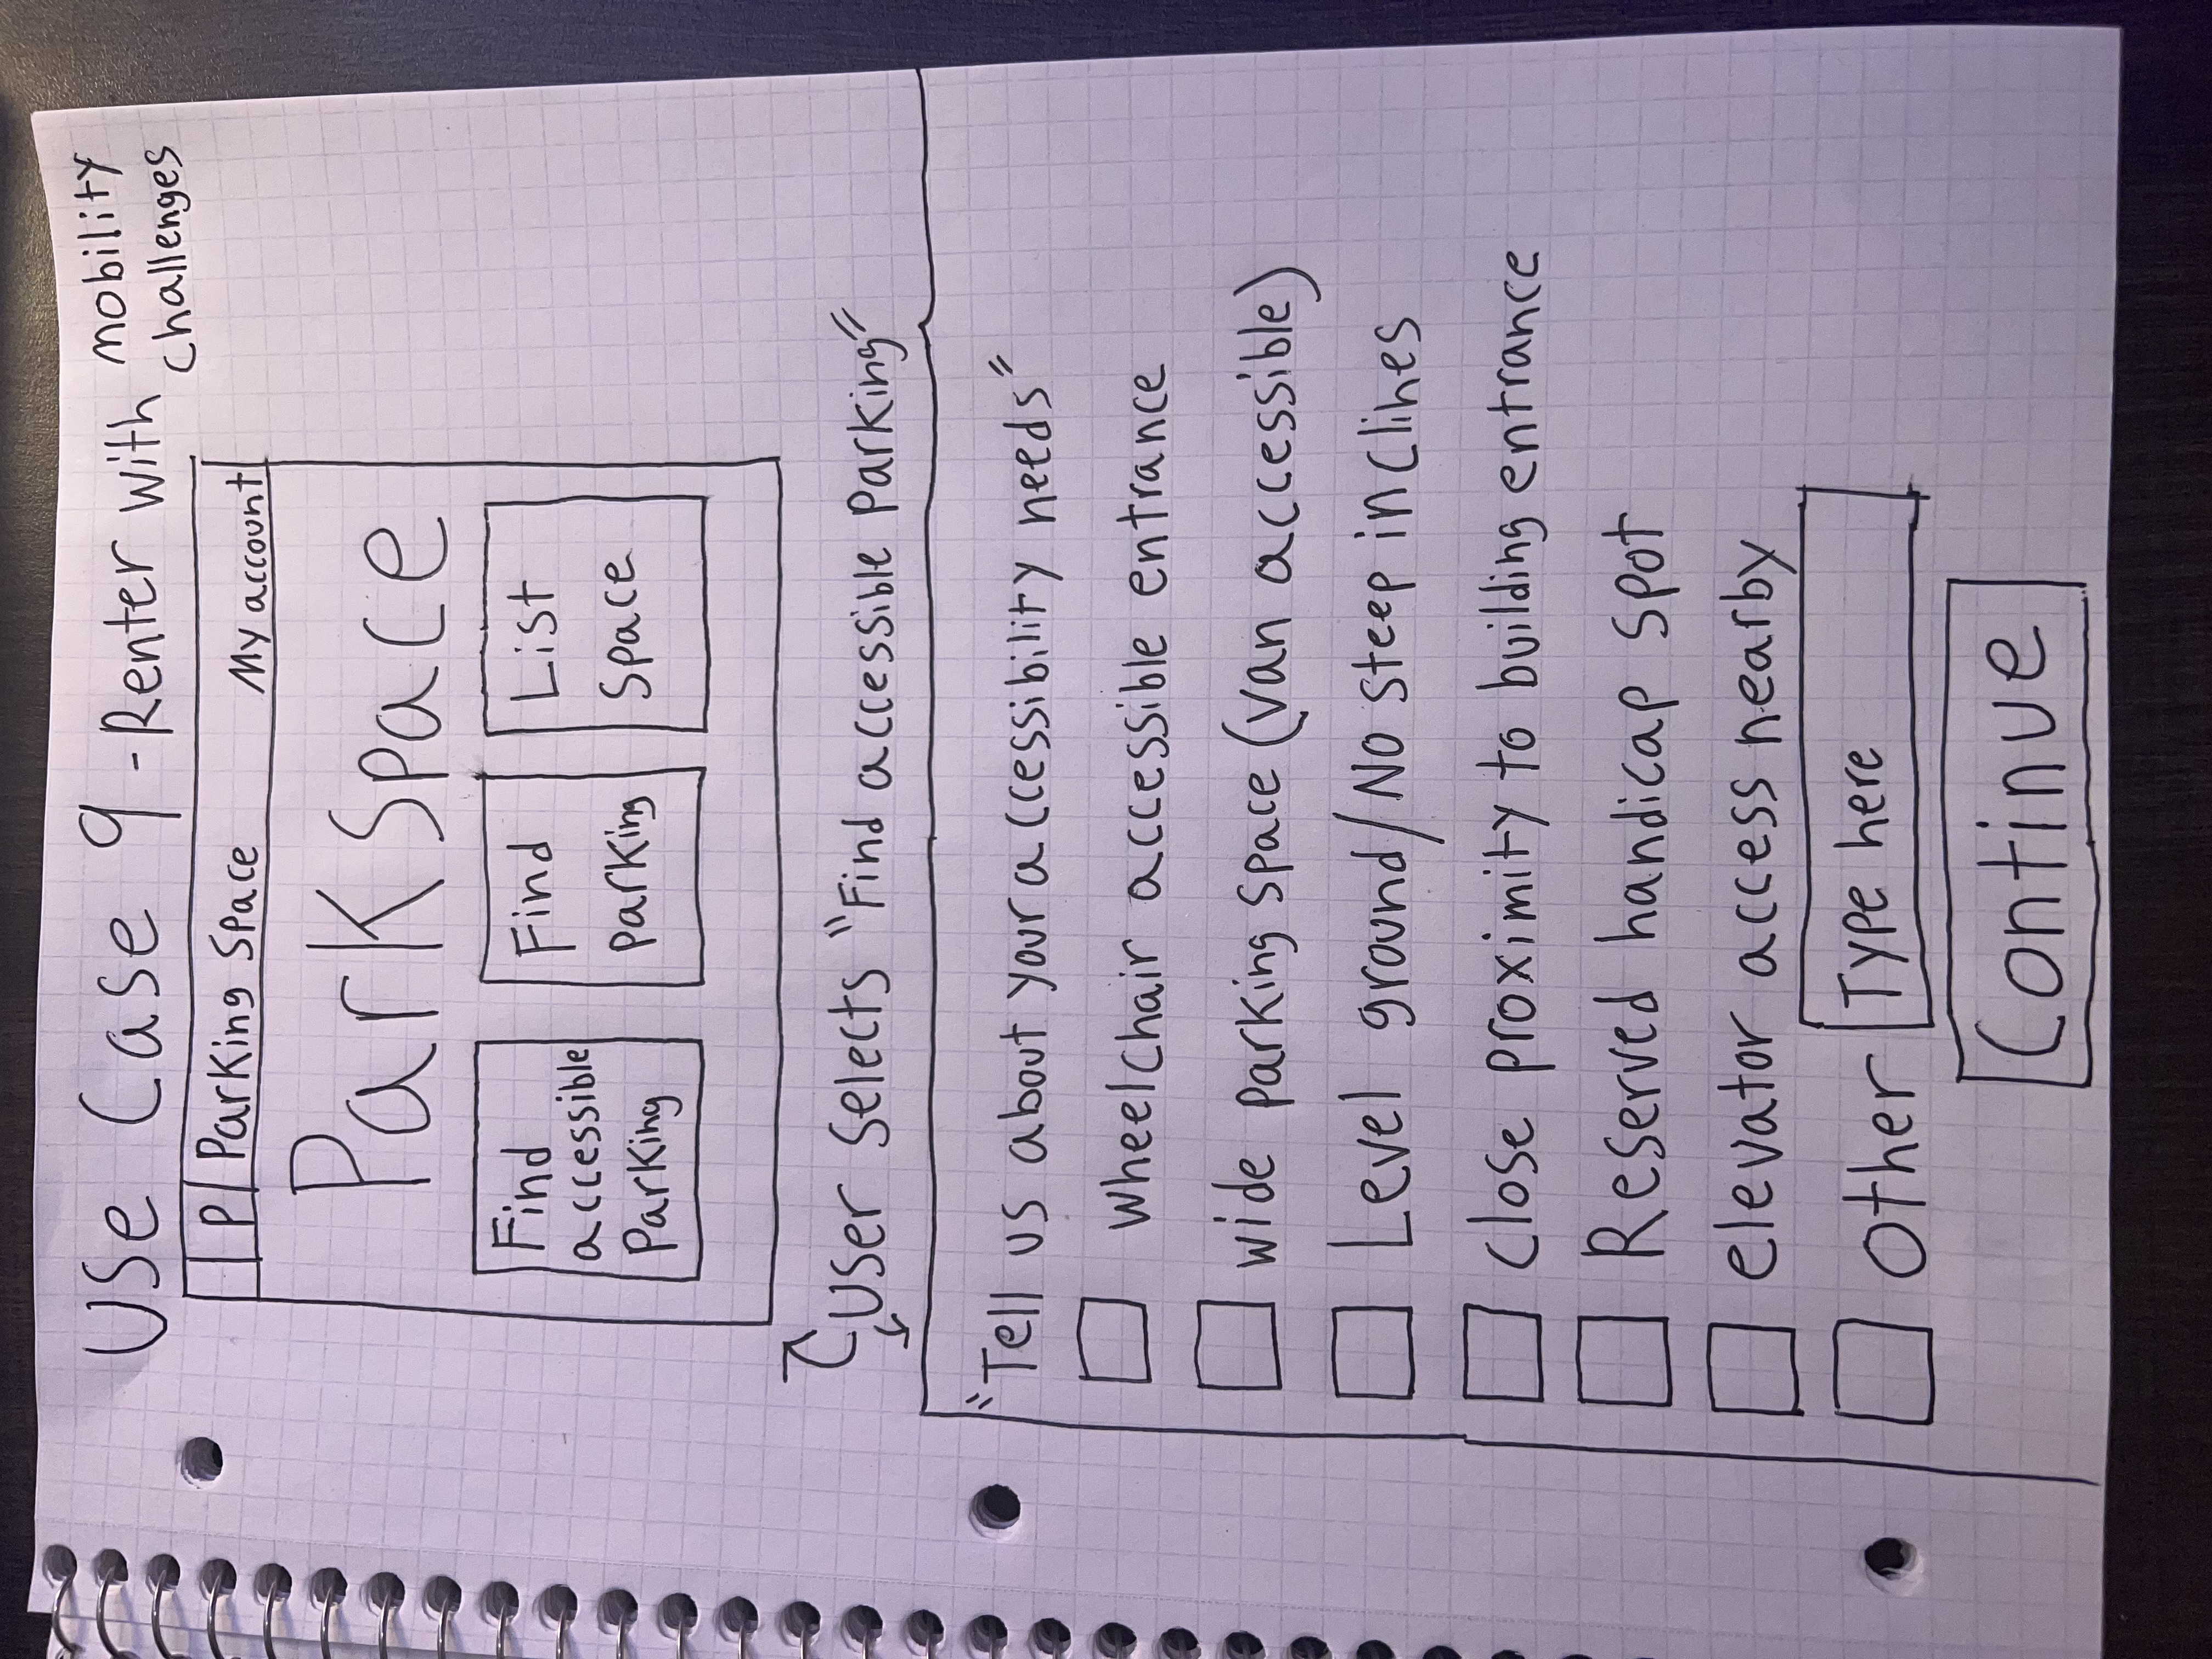 Use Case 9 - Renter with mobility challenges
P Parking Space My account
Park Space
Find accessible Parking
Find parking
List Space
User selects "Find accessible Parking"
"Tell us about your accessibility needs"
wheelchair accessible entrance
wide parking space (van accessible)
Level ground/No steep inclines
close proximity to building entrance
Reserved handicap spot
elevator access nearby
other Type here
Continue